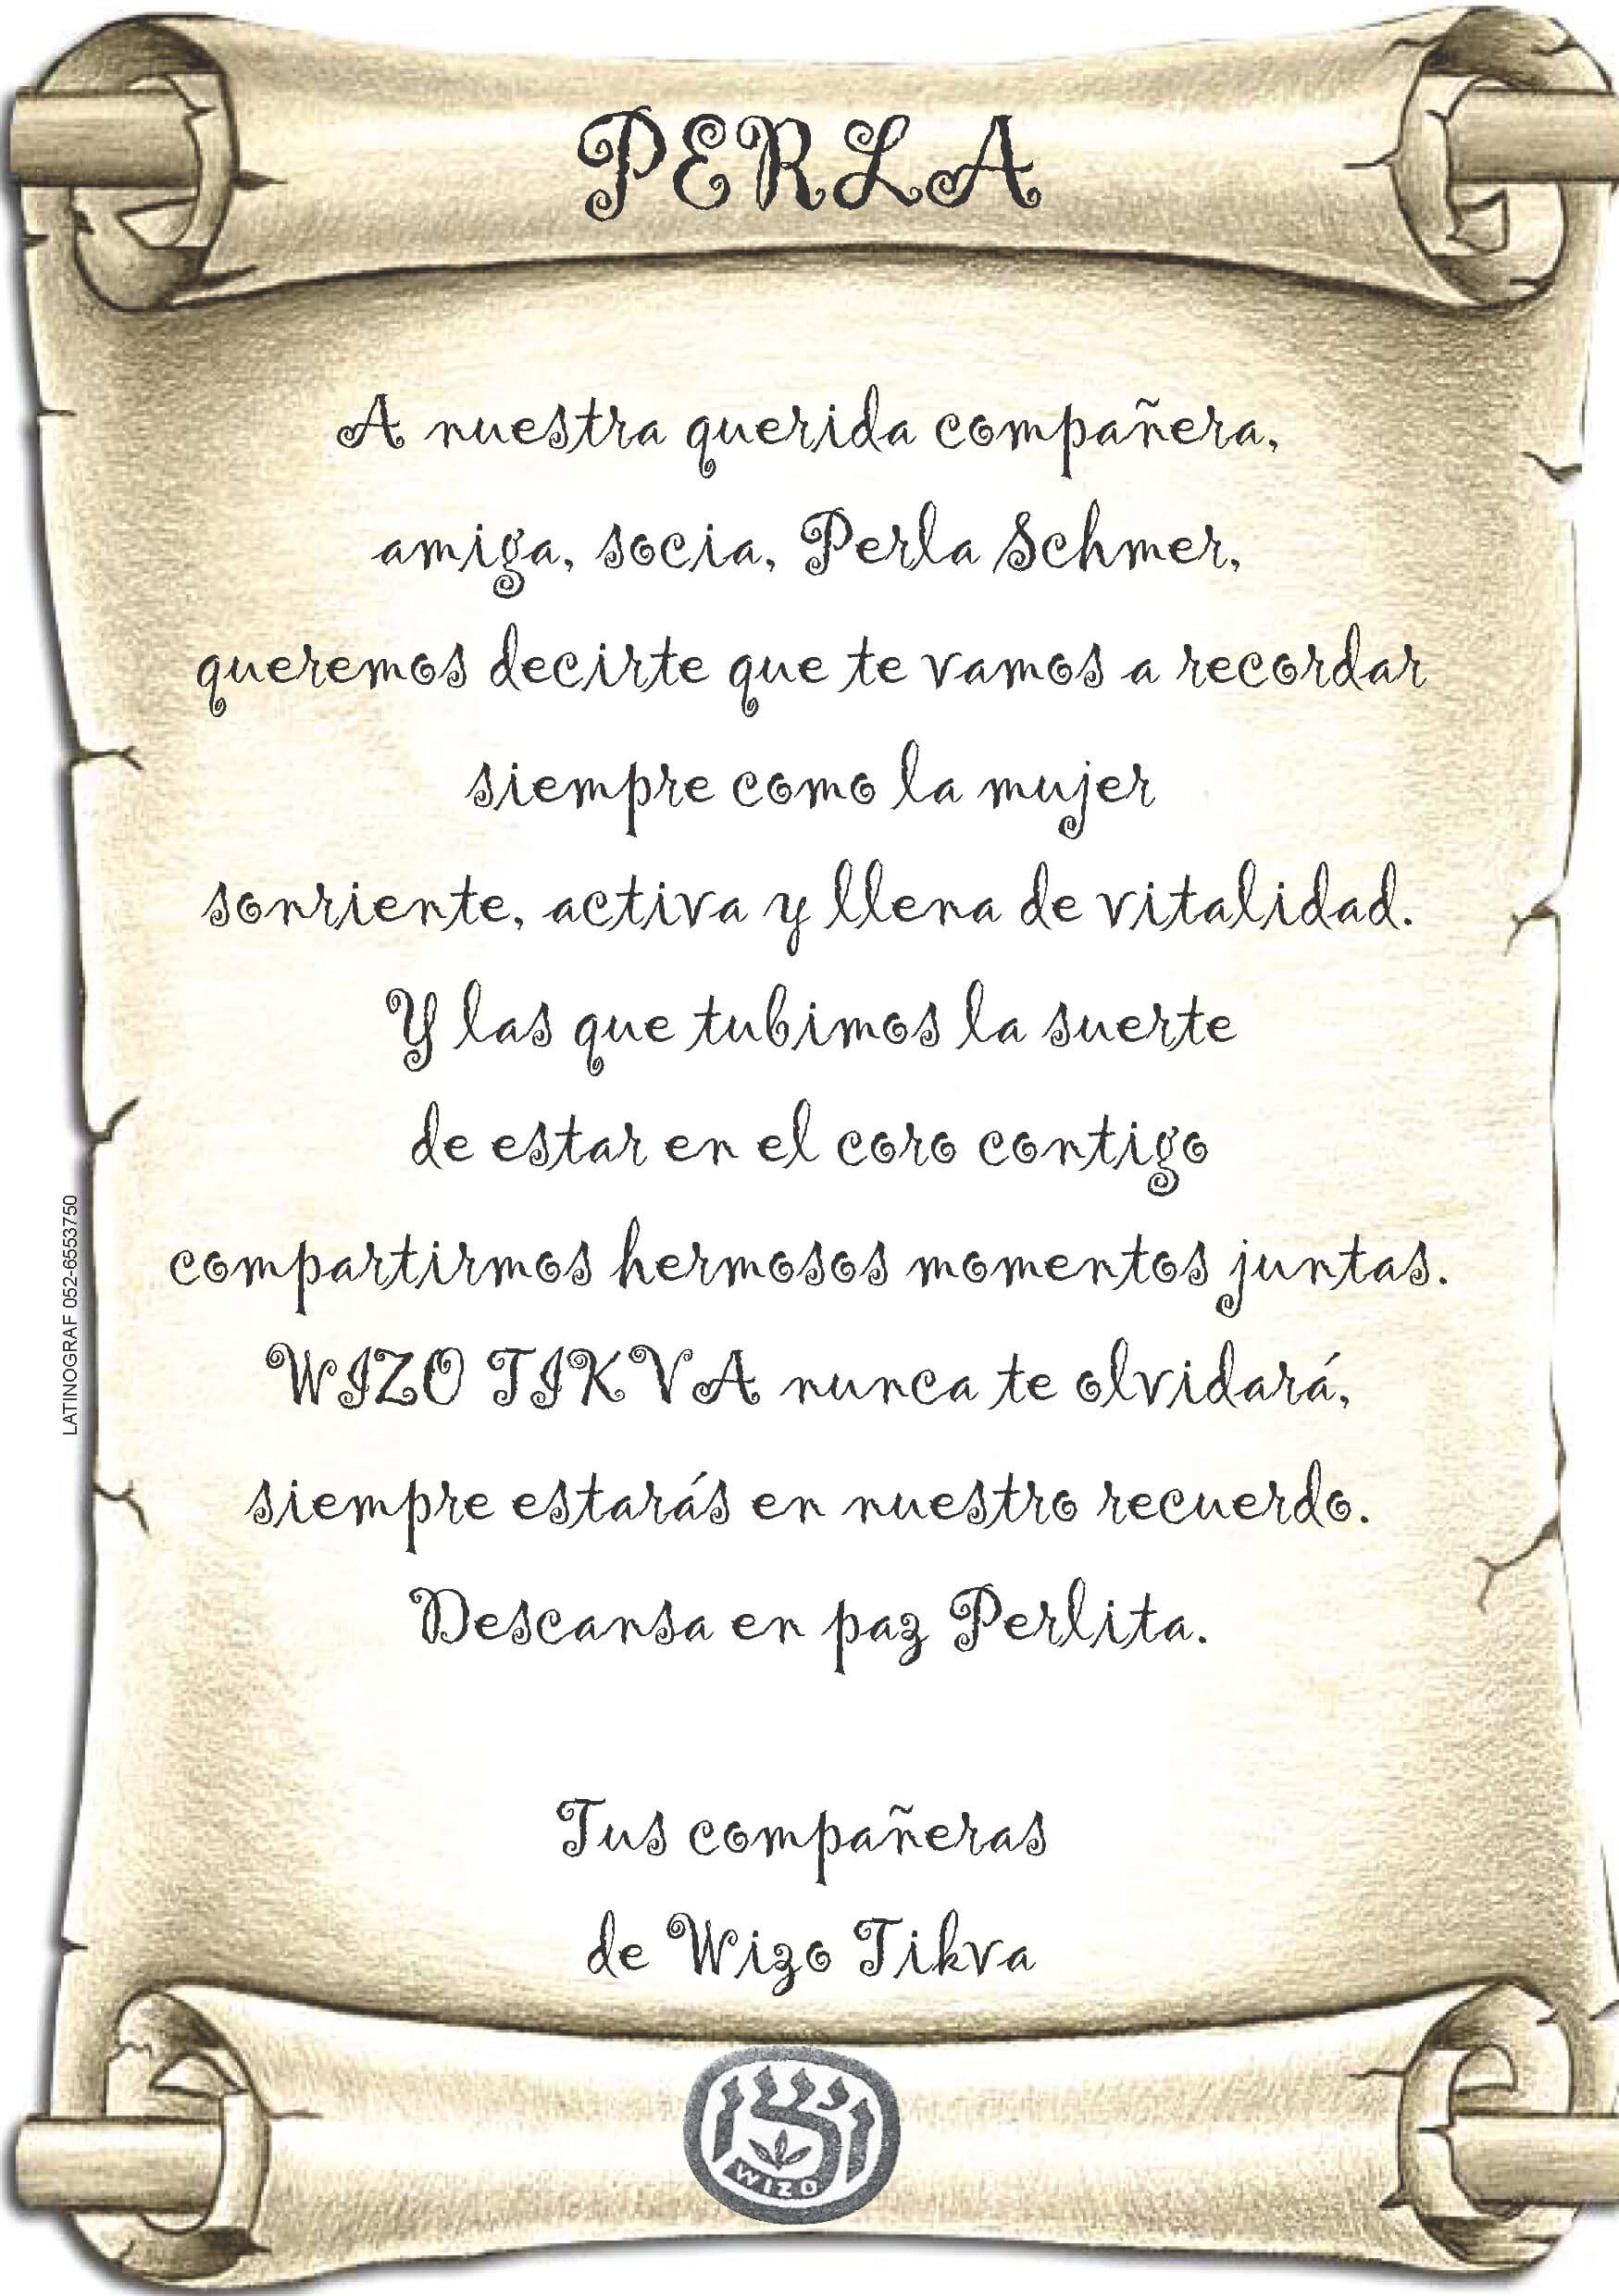 PERLA
A nuestra querida compañera,
amiga, socia, Perla Schmer,
queremos decirte que te vamos a recordar
siempre como la mujer
sonriente, activa y llena de vitalidad.
Y las que tubimos la suerte
de estar en el coro contigo
compartirmos hermosos momentos juntas.
WIZO TIKVA nunca te olvidará,
siempre estarás en nuestro recuerdo.
Descansa en paz Perlita.
Tus compañeras
de Wizo Tikva
ויצו
WIZO
LATINOGRAF 052-6553750